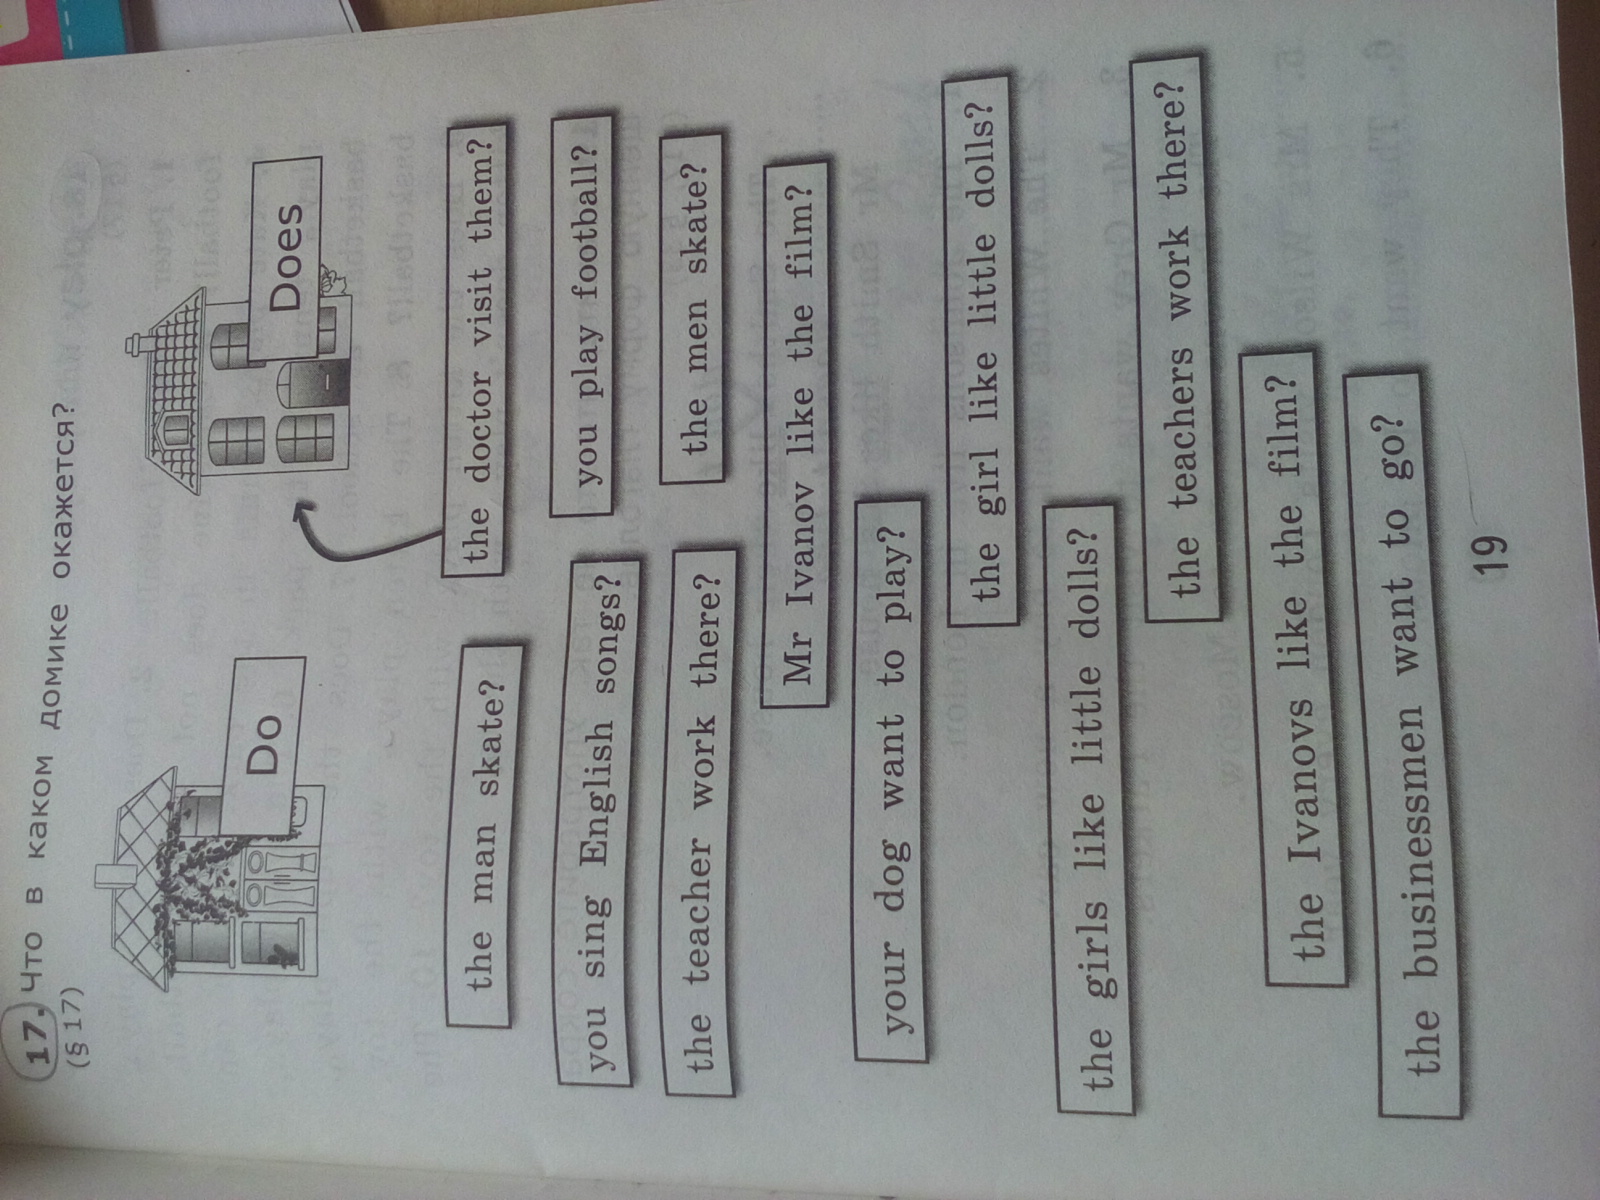 17. Что в каком домике окажется?
(§ 17)
Do
Does
the man skate?
the doctor visit them?
you sing English songs?
you play football?
the teacher work there?
the men skate?
Mr Ivanov like the film?
your dog want to play?
the girl like little dolls?
the girls like little dolls?
the teachers work there?
the Ivanovs like the film?
the businessmen want to go?
19